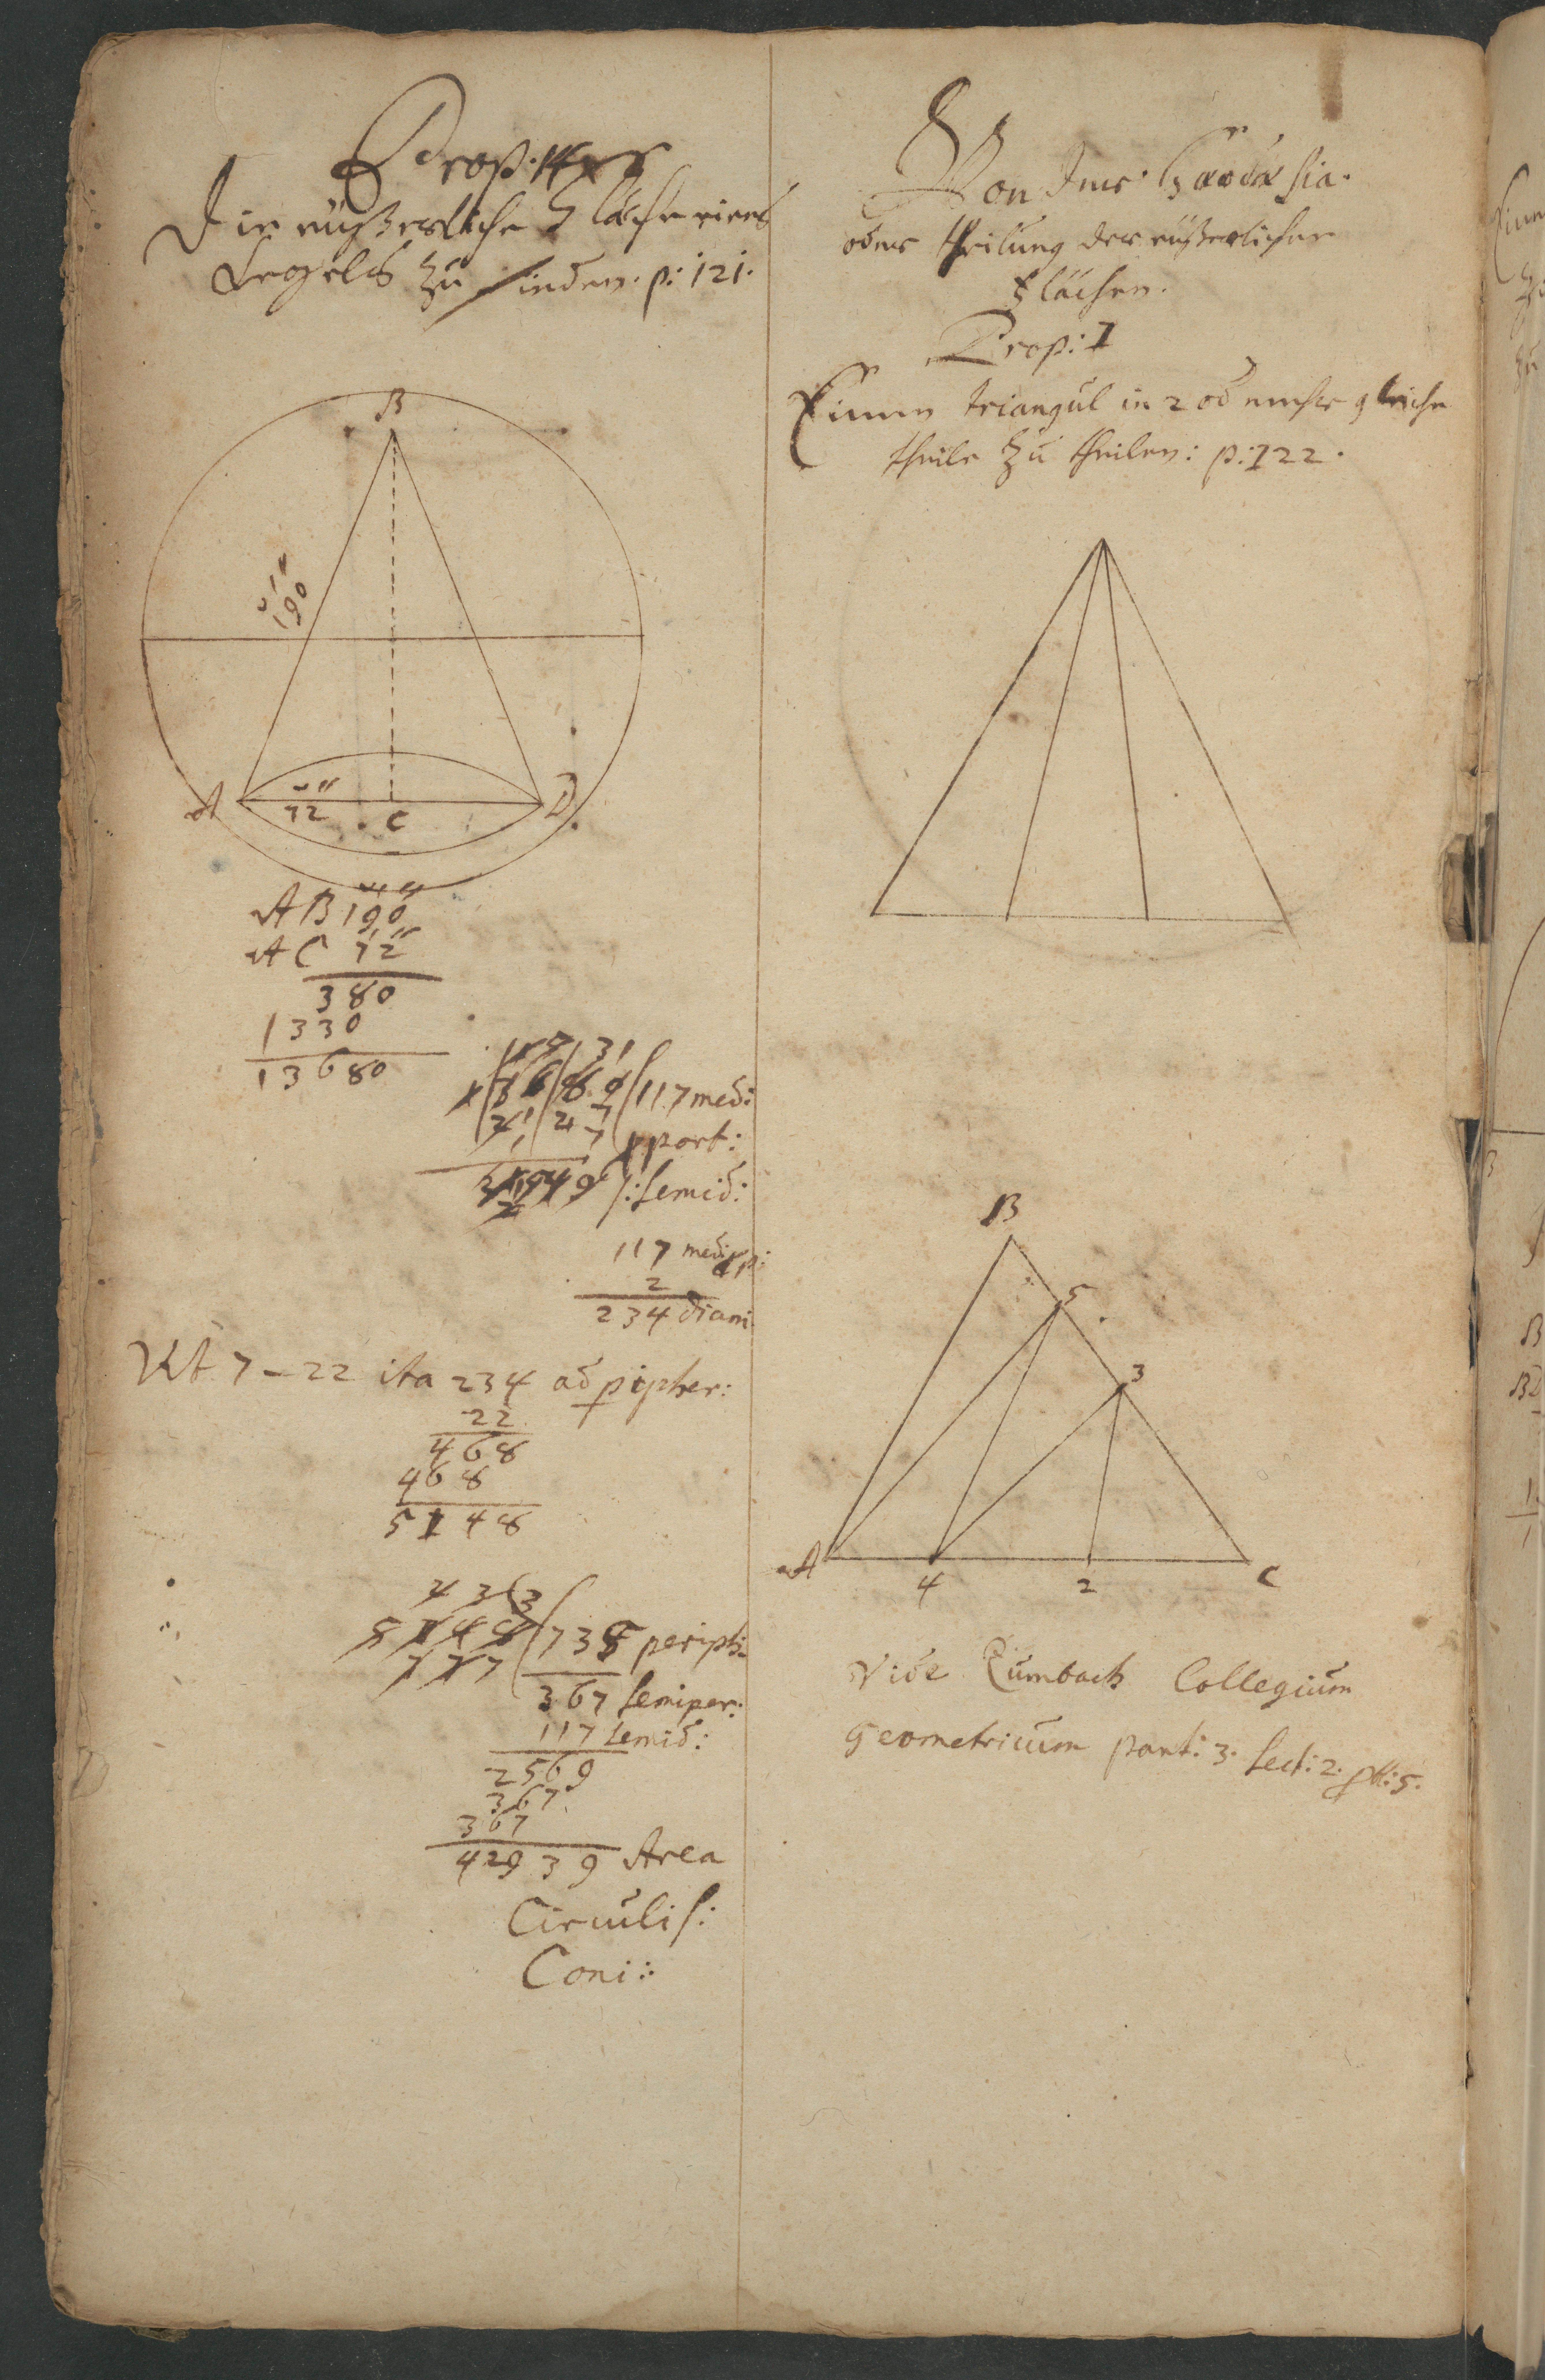 Prop. 14
Die eüßerliche Fläche eines
Kegels zu finden. p: 121.
B
190
A
72
C
D
AB 190
AC 72
380
1330
13680
117 med:
pport:
semid:
117 med: pp:
2
234 diam
Ut 7 - 22 ita 234 ad pipher:
22
468
468
5148
4 3 3
5148 ( 735 periph:
7 7 7
367 semiper:
117 semid:
2569
367
367
42939 Area
Circulis:
Coni:
Von der Geodæsia.
oder theilung der eüßerlichen
Flächen.
Prop: I
Einen triangul in 2 od mehr gleiche
theile zu theilen: p: 122.
B
5
3
A
4
2
C
Vide Zumbach Collegium
Geometricum part: 3. sect: 2. 5.